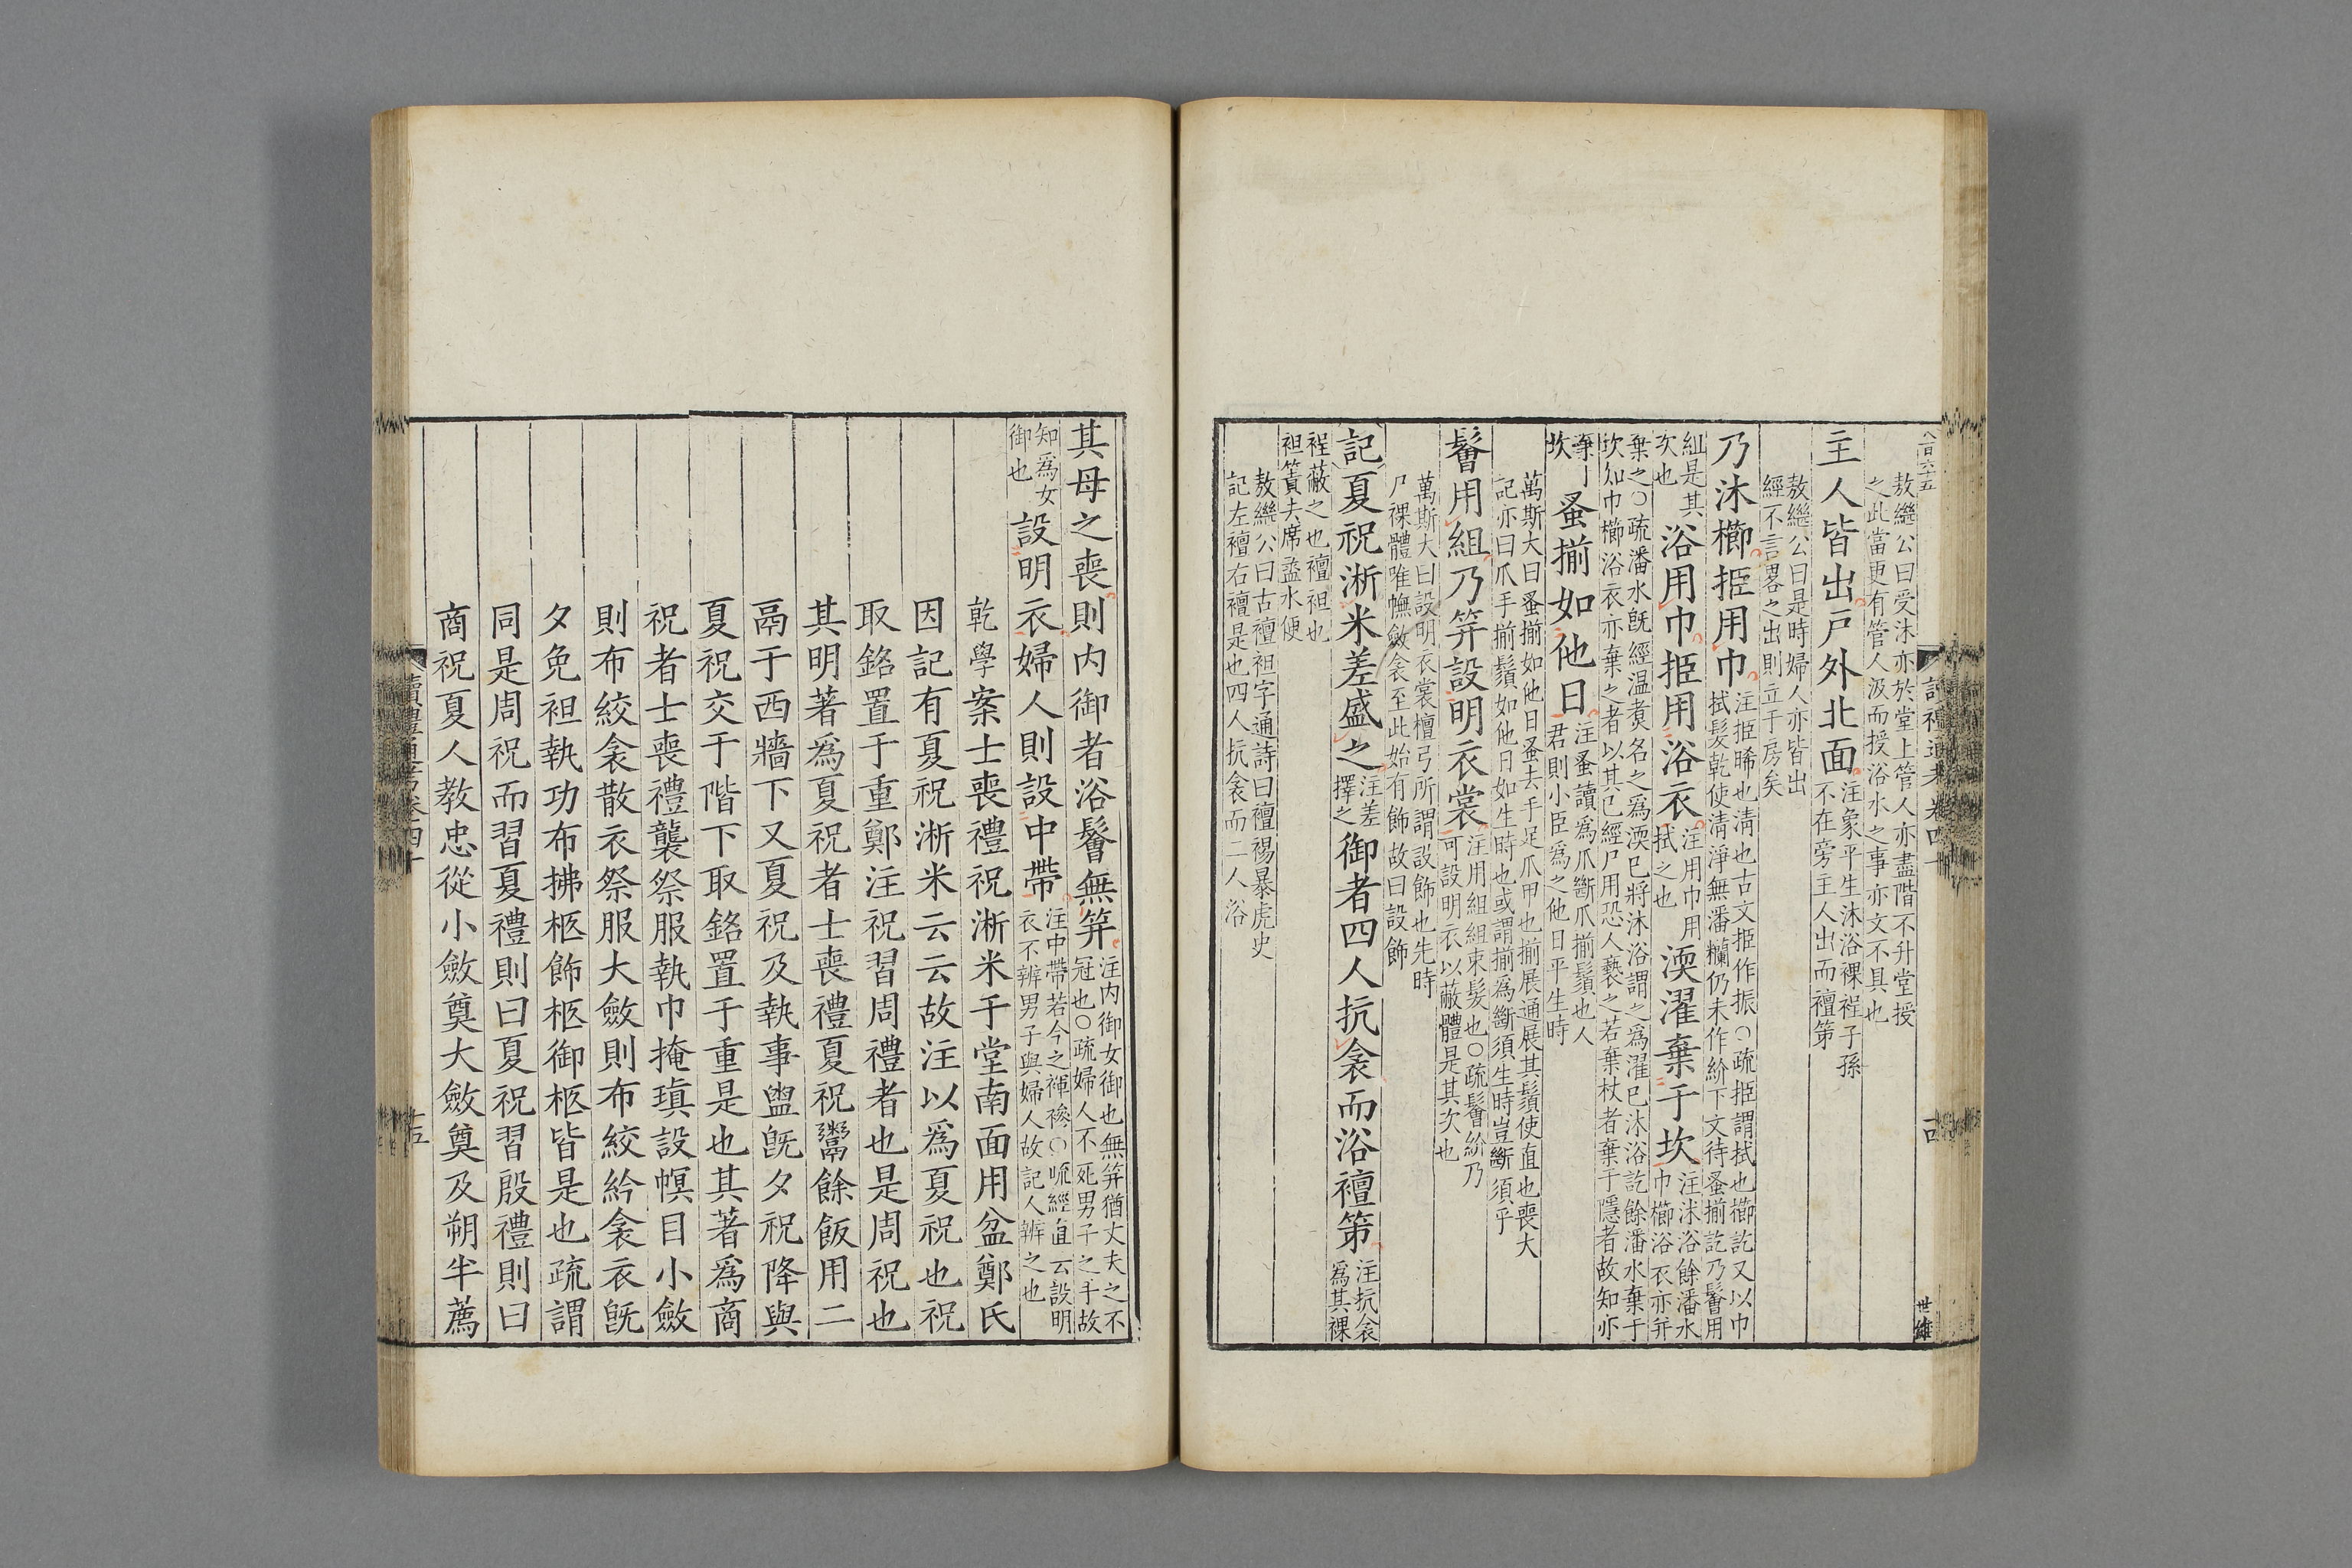 八百六十五
敖繼公曰受沐亦於堂上管人亦盡階不升堂授
之此當更有管人汲而授浴水之事亦文不具也
主人皆出戸外北面注象平生沐浴裸裎子孫
不在旁主人出而襢第
敖繼公曰是時婦人亦皆出
經不言畧之出則立于房矣
乃沐櫛挋用巾注挋晞也淸也古文挋作振○疏挋謂拭也櫛訖又以巾
拭髮乾使淸淨無潘糷仍未作紒下文待蚤揃訖乃鬠用
組是其
次也浴用巾挋用浴衣注用巾用
拭之也渜濯棄于坎注沐浴餘潘水
巾櫛浴衣亦并
棄之○疏潘水旣經温煑名之爲渜巳將沐浴謂之爲濯巳沐浴訖餘潘水棄于
坎知巾櫛浴衣亦棄之者以其已經尸用恐人褻之若棄杖者棄于隱者故知亦
棄于
坎蚤揃如他日注蚤讀爲爪斷爪揃鬚也人
君則小臣爲之他日平生時
萬斯大曰蚤揃如他日蚤去手足爪甲也揃展通展其鬚使直也喪大
記亦曰爪手揃鬚如他日如生時也或謂揃爲斷須生時豈斷須乎
鬠用組乃笄設明衣裳注用組組束髮也○疏鬠紒乃
可設明衣以蔽體是其次也
萬斯大曰設明衣裳檀弓所謂設飾也先時
尸裸體唯幠斂衾至此始有飾故曰設飾
記夏祝淅米差盛之注差
擇之御者四人抗衾而浴襢第注抗衾
爲其裸
裎蔽之也襢袒也
袒簀去席盝水便
敖繼公曰古襢袒字通詩曰襢裼暴虎史
記左襢右襢是也四人抗衾而二人浴
讀禮通考卷四十
十四
世維
其母之喪則内御者浴鬠無笄注内御女御也無笄猶丈夫之不
冠也○疏婦人不死男子之手故
知爲女
御也設明衣婦人則設中帶注中帶若今之褌襂○疏經直云設明
衣不辨男子與婦人故記人辨之也
乾學案士喪禮祝淅米于堂南面用盆鄭氏
因記有夏祝淅米云云故注以爲夏祝也祝
取銘置于重鄭注祝習周禮者也是周祝也
其明著爲夏祝者士喪禮夏祝鬻餘飯用二
鬲于西牆下又夏祝及執事盥旣夕祝降與
夏祝交于階下取銘置于重是也其著爲商
祝者士喪禮襲祭服執巾掩瑱設幎目小斂
則布絞衾散衣祭服大斂則布絞紟衾衣旣
夕免袒執功布拂柩飾柩御柩皆是也疏謂
同是周祝而習夏禮則曰夏祝習殷禮則曰
商祝夏人教忠從小斂奠大斂奠及朔半薦
讀禮通考卷四十
十五